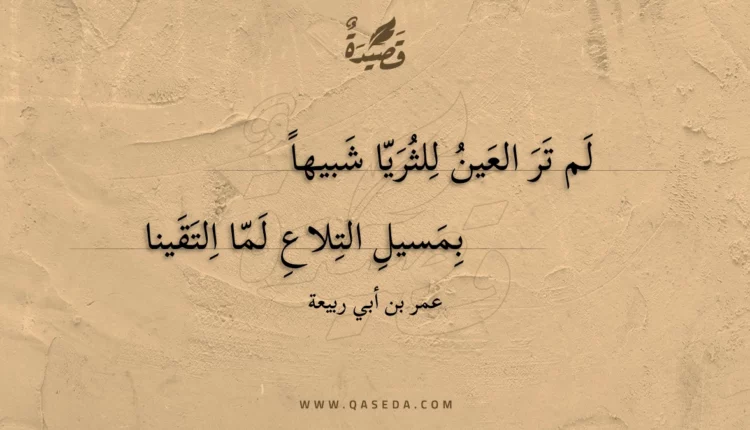 قَصِيدَةٌ
لَم تَرَ العَينُ لِلثُرَيّا شَبيهاً
بِمَسيلِ التِلاعِ لَمّا اِلتَقَينا
عمر بن أبي ربيعة
WWW.QASEDA.COM